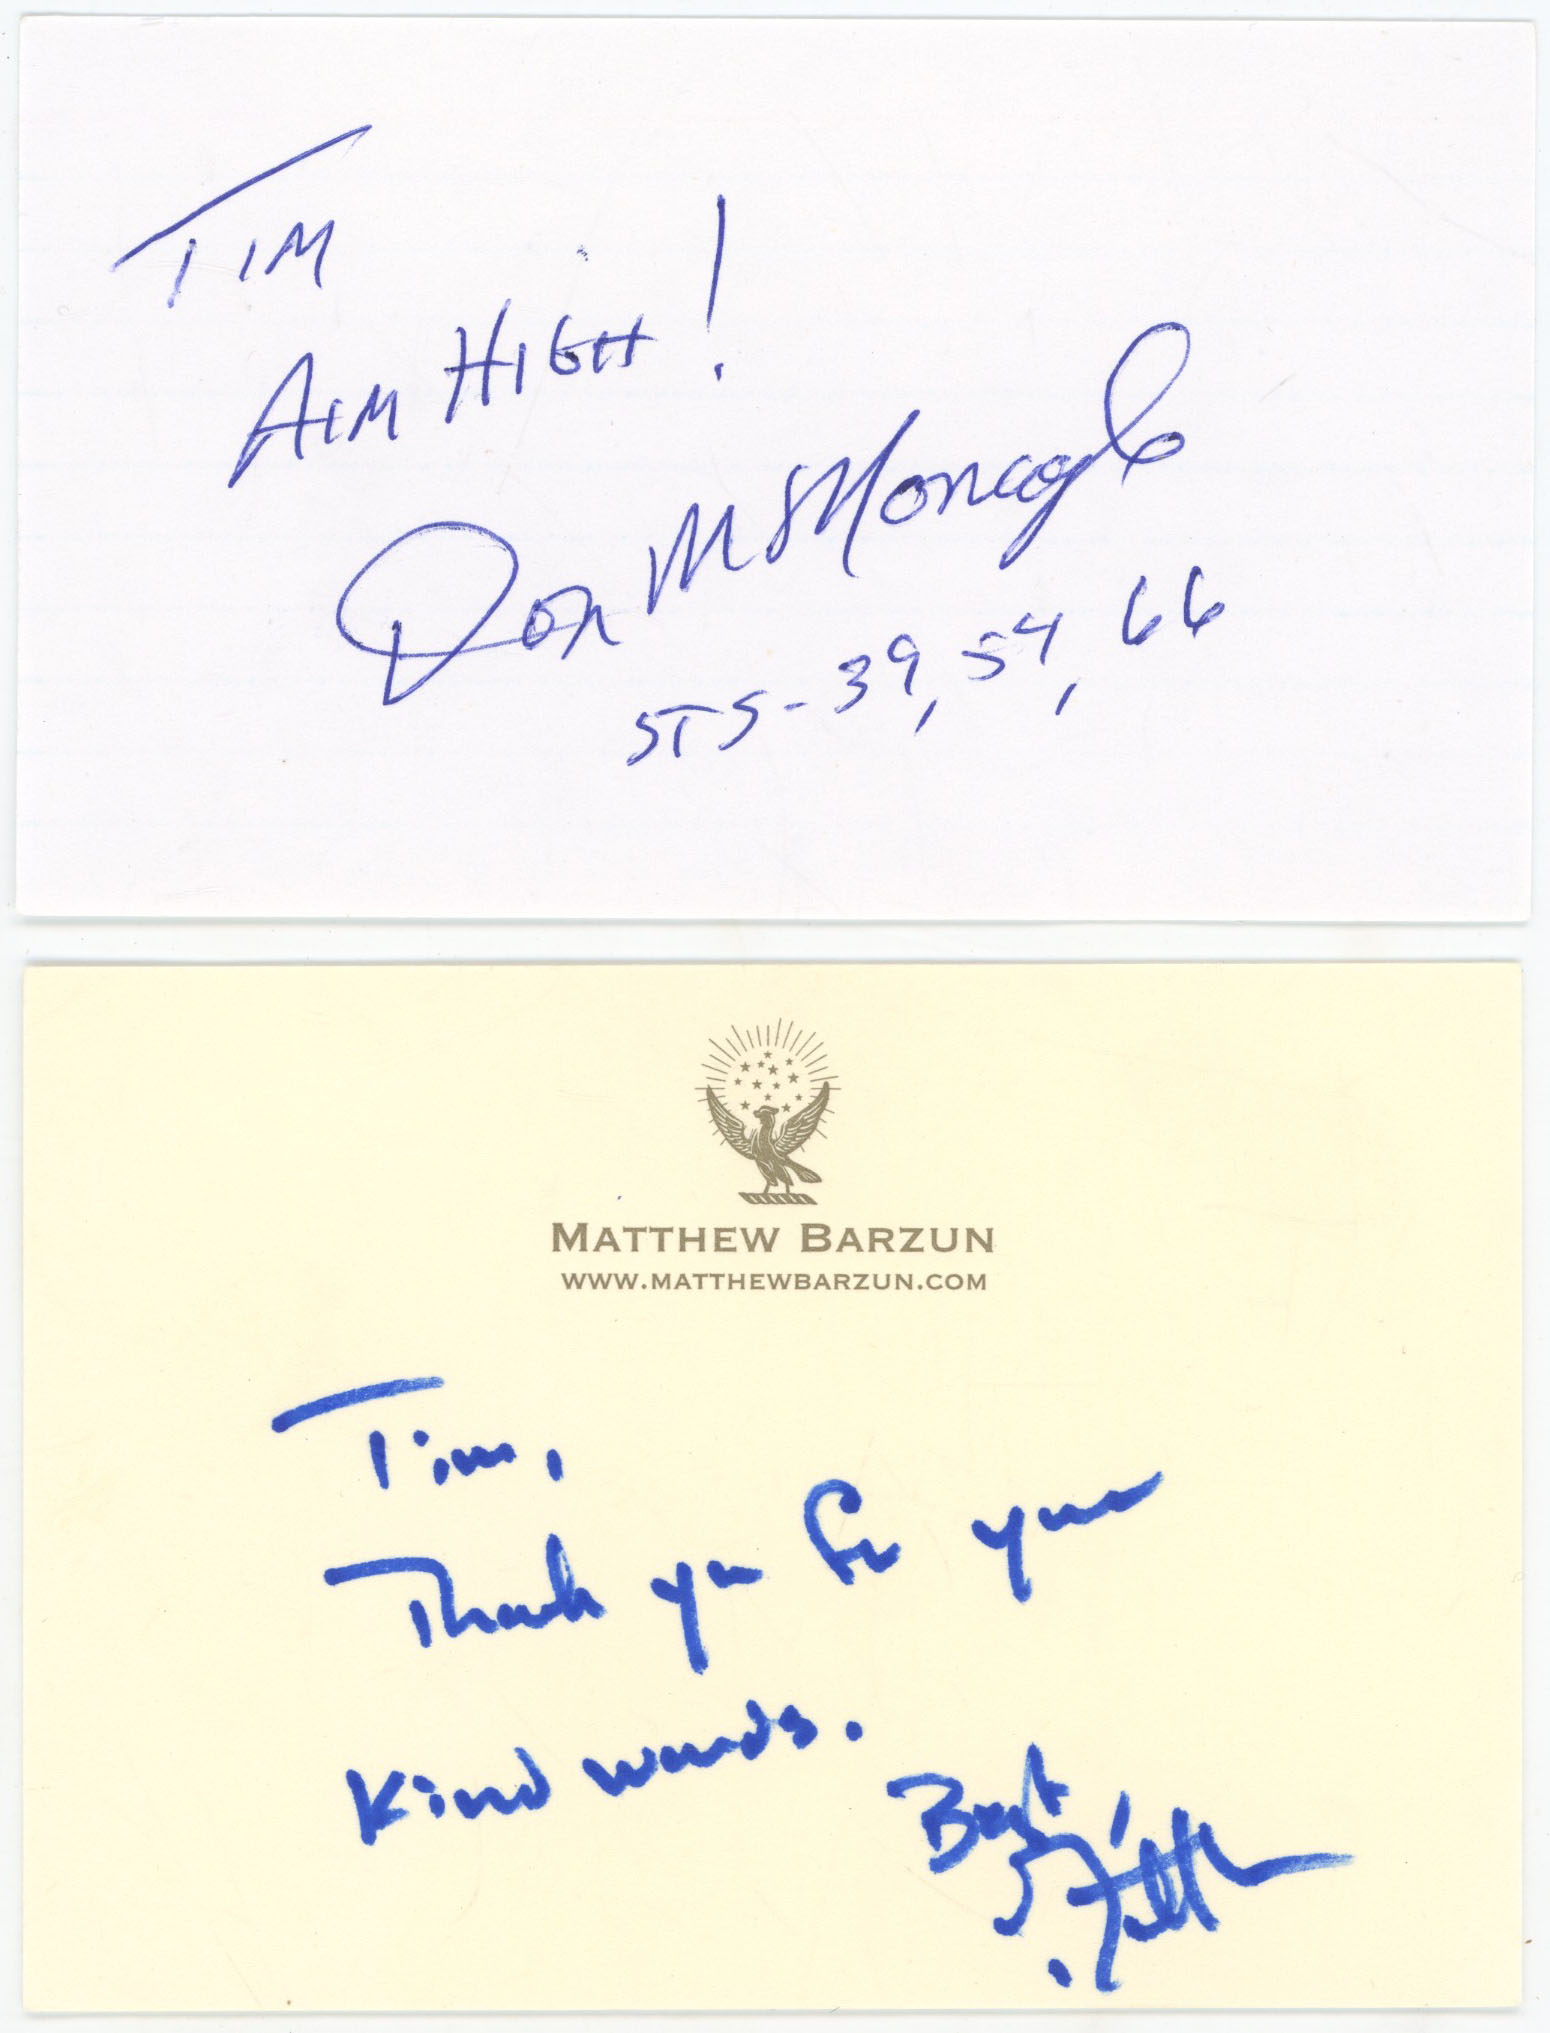 TIM
AIM HIGH!
Don McMonagle
STS-39, 54, 66
MATTHEW BARZUN
WWW.MATTHEWBARZUN.COM
Tim,
Thank you for your
kind words.
Best
Matthew